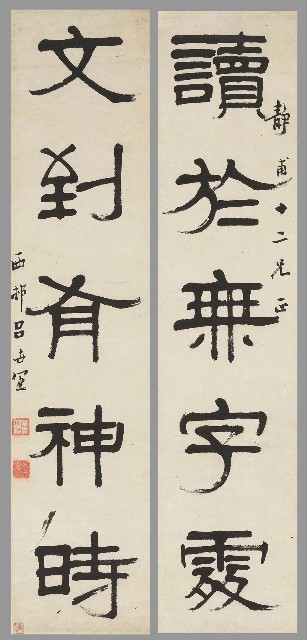 靜甫十二兄正
讀於無字處
文到有神時
西邨呂世宜